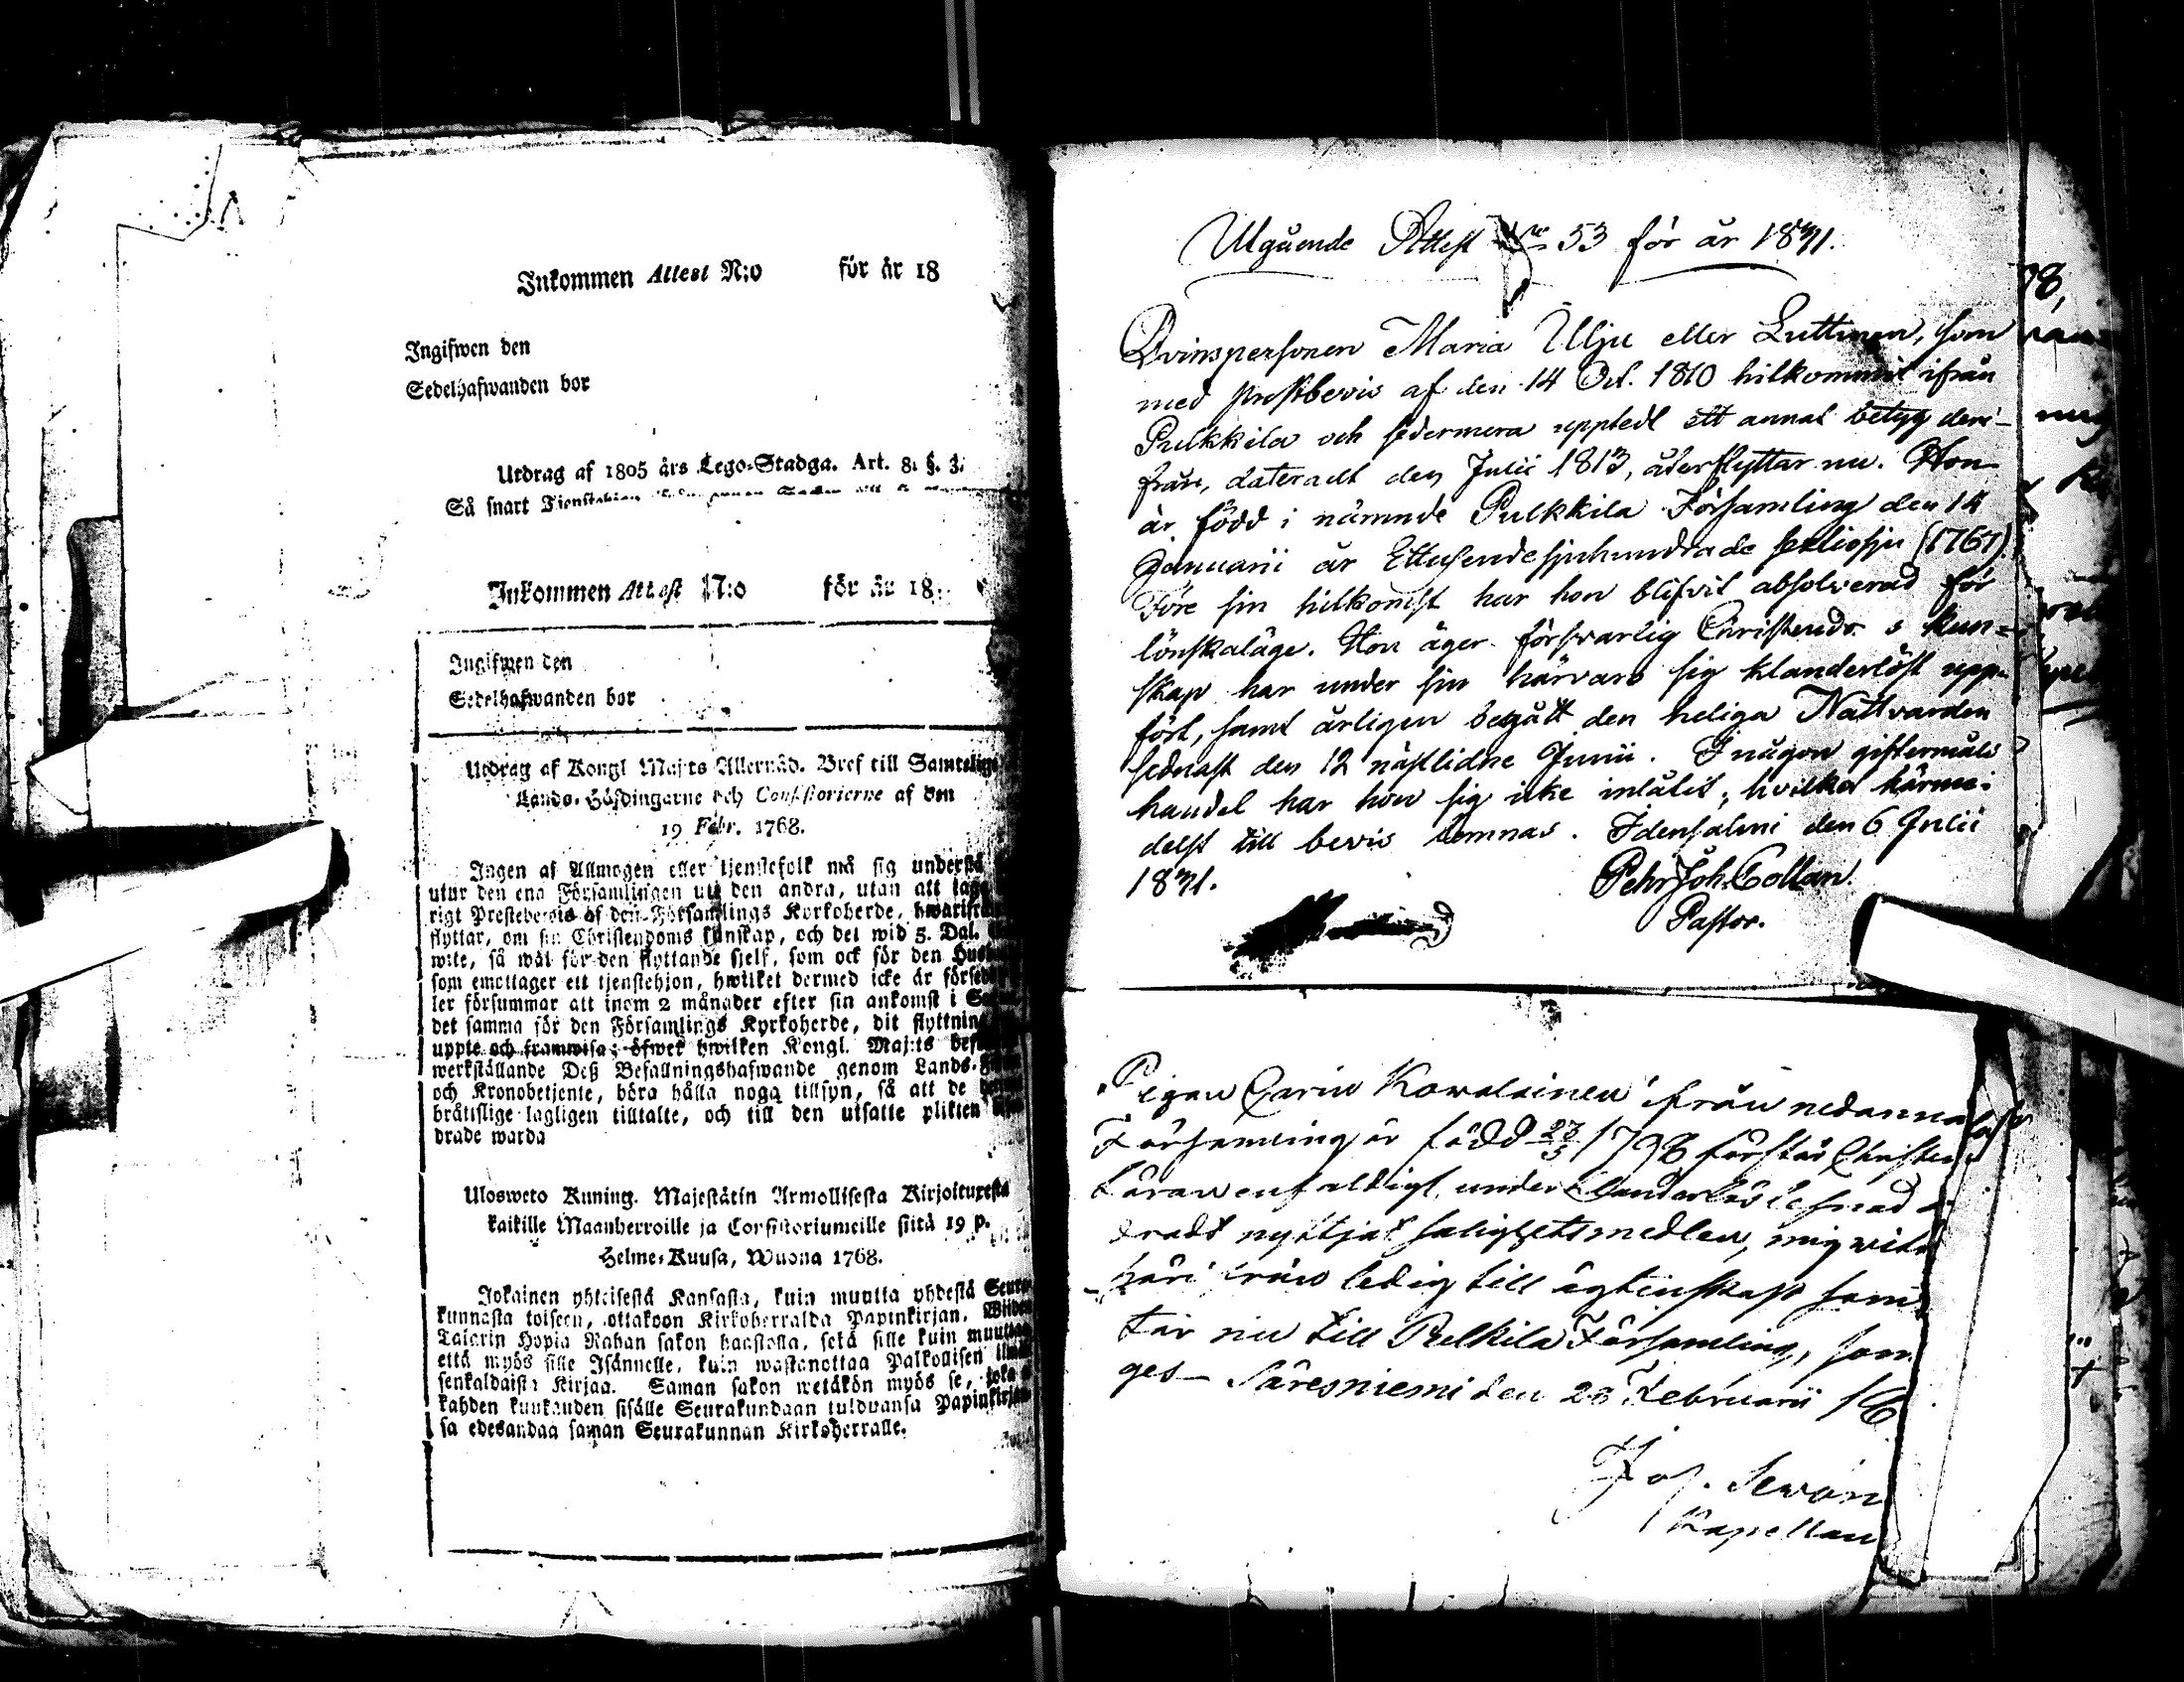 Inkommen Attest N:o för är 18
Ingifwen den
Sedelhafwanden bor
Utdrag af 1805 års Lego-Stadga. Art. 8. §. 3.
Så snart
Inkommen Attest N:o för är 18
Ingifwen den
Sedelhafwanden bor
Utdrag af Kongl Maj:ts Allernåd. Bref till Samtelige
Lands-Höfdingarne och Consistorierne af den
19 Febr. 1768.
Ingen af Allmogen eller tjenstefolk må sig understå
utur den ena Församlingen uti den andra, utan att
rigt Prestebewis af den Församlings Kyrkoherde, hwarifrå
flyttar, om sin Christendoms kunskap, och det wid 5. Dal.
wite, så wäl för den flyttande sjelf, som ock för den
som emottager ett tjenstehjon, hwilket dermed icke är förse
ler försummar att inom 2 månader efter sin ankomst i
det samma för den Församlings Kyrkoherde, dit flyttnin
uppte och framwisa; öfwer hwilken Kongl. Maj:ts
werkställande Deß Befallningshafwande genom Lands-
och Kronobetjente, böra hålla noga tillsyn, så att de
bråttslige lagligen tilltalte, och till den utsatte plikten
drade warda
Ulosweto Kuning. Majestätin Armollisesta Kirjoituxesta
kaikille Maanherroille ja Consistoriumeille siitä 19 p.
Helme-Kuusa, Wuona 1768.
Jokainen yhteisestä Kansasta, kuin muutta yhdestä Seura
kunnasta toiseen, ottakoon Kirkoherralda Papinkirjan,
Talarin Hopia Rahan sakon haastolla, sekä sille kuin
että myös sille Isännelle, kuin wastanottaa Palkollisen
senkaldaista Kirjaa. Saman sakon wetäkön myös se, joka
kahden kuukauden sisälle Seurakundaan tuldvansa Papinkirjan
sa edesandaa saman Seurakunnan Kirkoherralle.
Utgående Attest N:o 53 för år 1831.
Qvinspersonen Maria Ulju eller Luttinen, som
med prestbevis af den 14 Oct. 1810 hitkommit ifrån
Pulkkila och sedermera uppted ett annat betyg deri-
från, dateradt den Julii 1813, återflyttar nu. Hon
är född i nämnde Pulkkila Församling den 14
Januarii år Ettusendesjuhundrade sextiosju (1767).
Före sin hitkomst har hon blifvit absolverad för
lönskaläge. Hon äger försvarlig Christendoms kun-
skap har under sin härvaro sig klanderlöst upp-
fört, samt årligen begått den heliga Nattvarden
sednast den 12 nästlidne Junii. I någon giftermåls
handel har hon sig icke inlåtit; hvilket härme-
delst till bevis lemnas. Idensalmi den 6 Julii
1831.
Pehr Joh. Collan.
Pastor.
Pigan Carin Kowalainen ifrån nedanna
Församling är född 23/3 1798 förstår Christen
Läran enfaldigt, under klanderlös lefnad
dradt nyttjat salighetsmedlen, mig wit
häri från ledig till ägtenskap sam
tar nu till Pulkila Församling, som
ges Säresniemi den 23 Februarii 18
Jos. Sewón
Kapellan